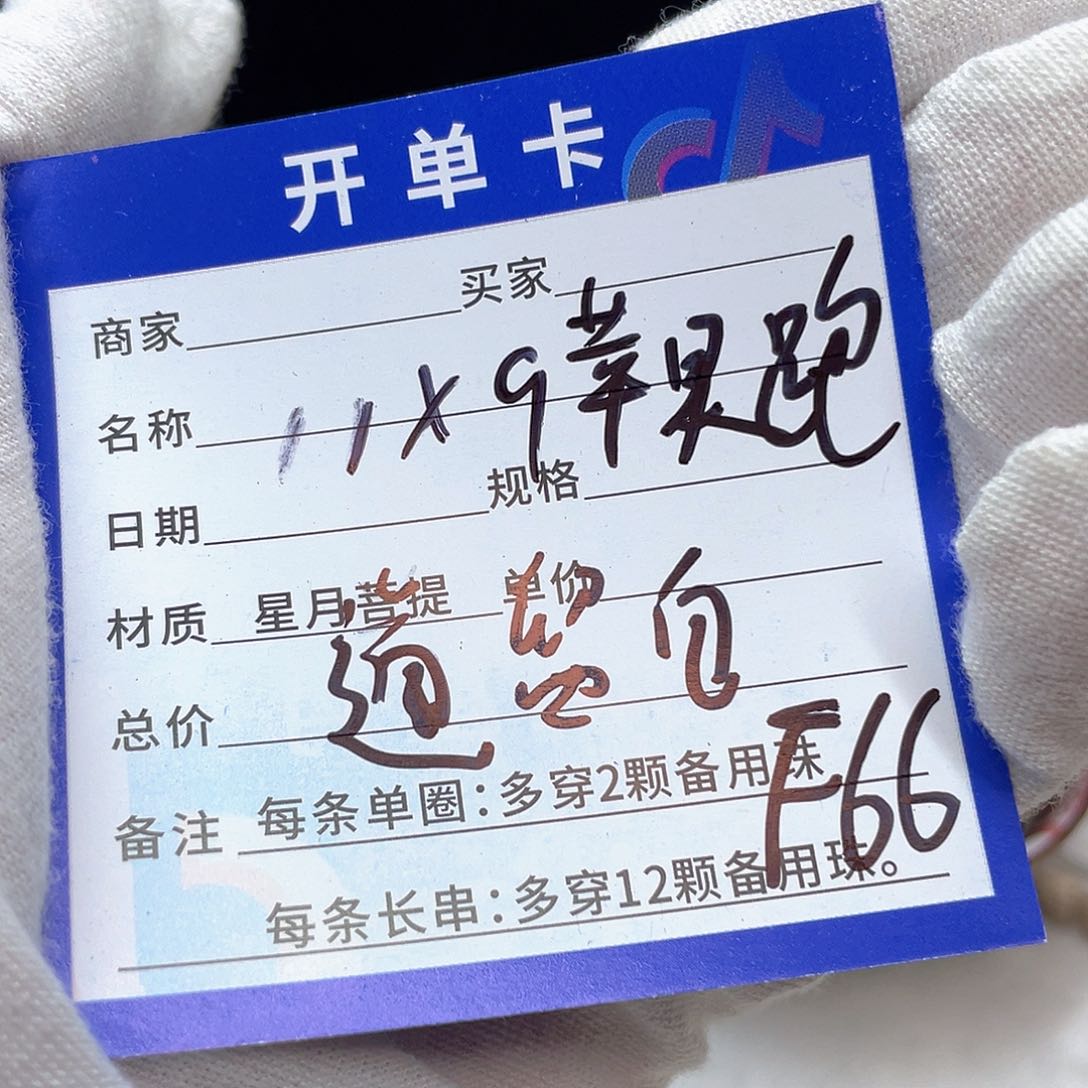 开单卡
商家 买家
名称 11×9苹果跑
日期 规格
材质 星月菩提 单价
总价
备注 每条单圈:多穿2颗备用珠 F66
每条长串:多穿12颗备用珠。